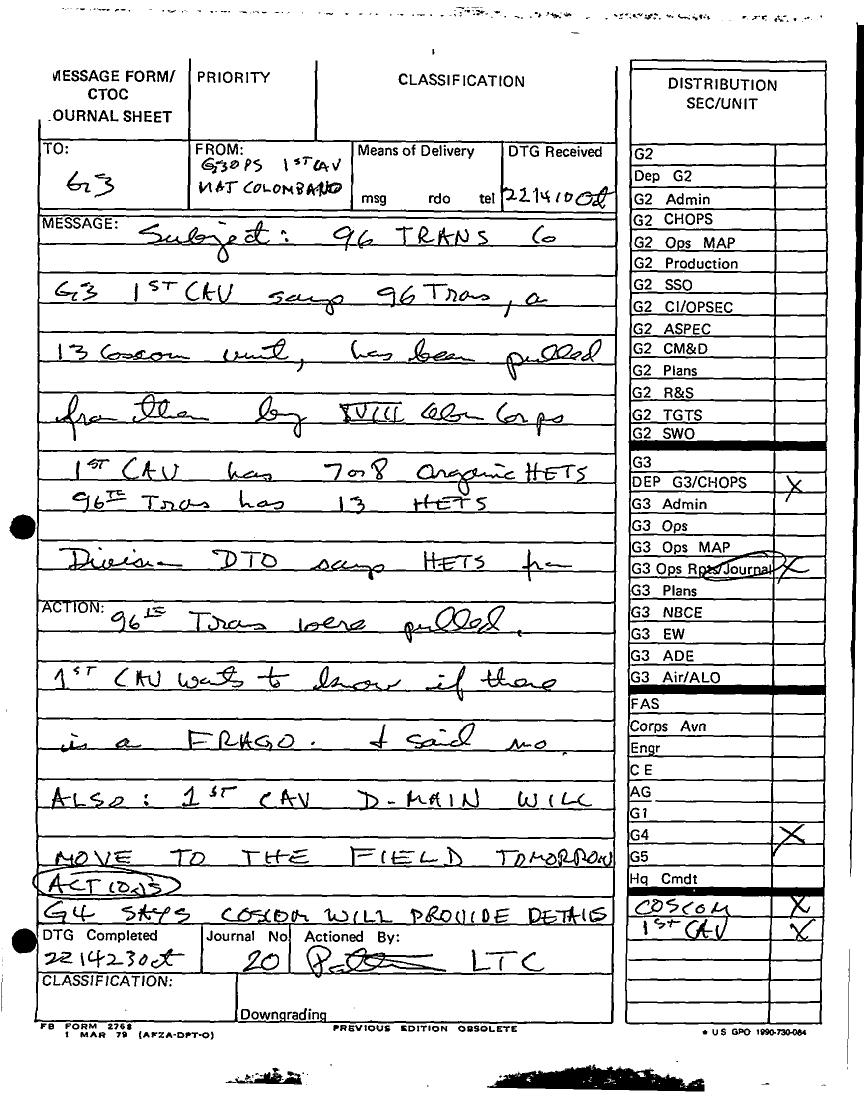 MESSAGE FORM/
CTOC
JOURNAL SHEET
PRIORITY
CLASSIFICATION
TO:
G3
FROM:
G3OPS 1ST CAV
MAT COLOMBANO
Means of Delivery
msg rdo tel
DTG Received
221410 Oct
MESSAGE: Subject: 96 TRANS Co
G3 1ST CAV says 96 Trans, a
13 Coscom unit, has been pulled
from them by XVIII Abn Corps
1ST CAV has 7 or 8 organic HETS
96TH Trans has 13 HETS
Division DTO says HETS from
ACTION: 96TH Trans were pulled.
1ST CAV wants to know if there
is a FRAGO. I said no.
ALSO: 1ST CAV D-MAIN WILL
MOVE TO THE FIELD TOMORROW
ACTIONS
G4 SAYS COSCOM WILL PROVIDE DETAILS
DTG Completed
221423 Oct
Journal No
20
Actioned By:
LTC
CLASSIFICATION:
Downgrading
FB FORM 2768
1 MAR 79 (AFZA-DPT-O)
PREVIOUS EDITION OBSOLETE
DISTRIBUTION
SEC/UNIT
G2
Dep G2
G2 Admin
G2 CHOPS
G2 Ops MAP
G2 Production
G2 SSO
G2 CI/OPSEC
G2 ASPEC
G2 CM&D
G2 Plans
G2 R&S
G2 TGTS
G2 SWO
G3
DEP G3/CHOPS X
G3 Admin
G3 Ops
G3 Ops MAP
G3 Ops Rpts/Journal X
G3 Plans
G3 NBCE
G3 EW
G3 ADE
G3 Air/ALO
FAS
Corps Avn
Engr
C E
AG
G1
G4 X
G5
Hq Cmdt
COSCOM X
1ST CAV X
* US GPO 1990-730-084